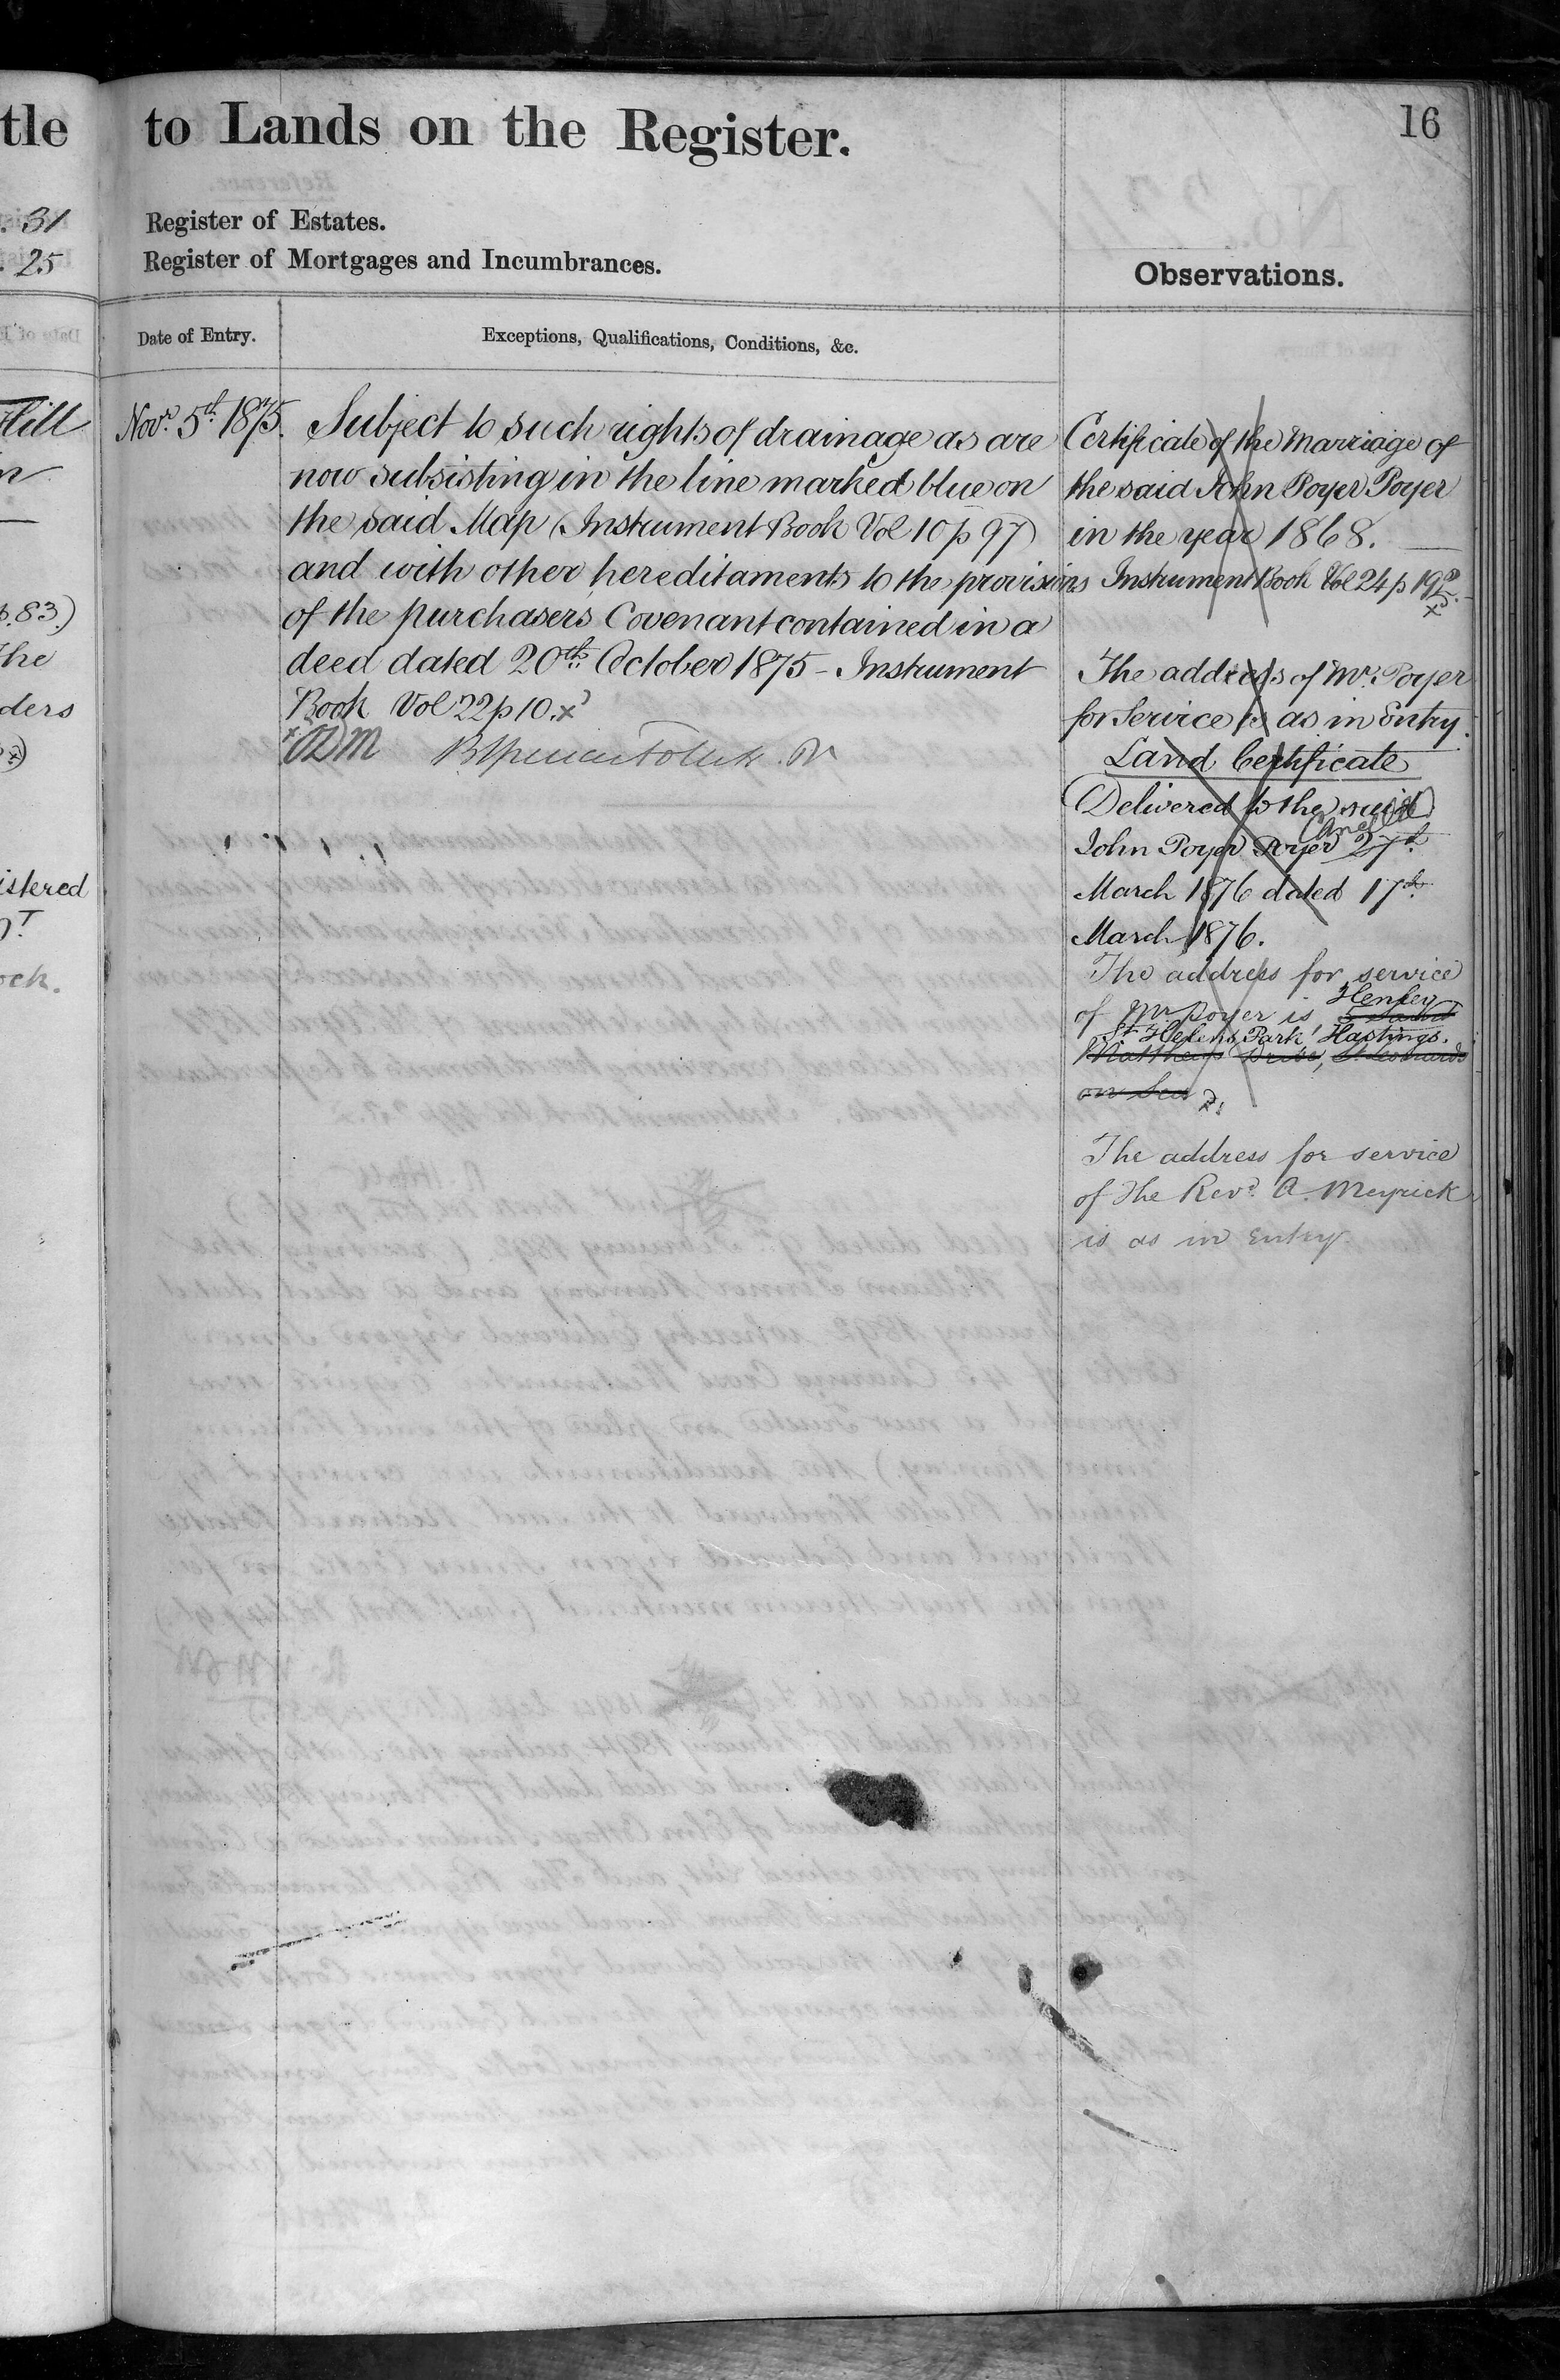 tle
to Lands on the Register.
16
31
25
Register of Estates.
Register of Mortgages and Incumbrances.
Observations.
Date of Entry.
Exceptions, Qualifications, Conditions, &c.
Novr. 5th. 1875.
Subject to such rights of drainage as are
now subsisting in the line marked blue on
the said Map (Instrument Book Vol 10 p 97)
and with other hereditaments to the provisions
of the purchasers Covenant contained in a
deed dated 20th. October 1875 - Instrument
Book Vol 22 p 10. x
Certificate of the Marriage of
the said John Poyer Poyer
in the year 1868.
Instrument Book Vol 24 p
The address of Mr. Poyer
for Service is as in Entry.
Land Certificate
Delivered to the said
Cancelled
John Poyer Poyer 27th
March 1876 dated 17th
March 1876.
The address for service
Henley
of Mr. Poyer is
St Helens Park, Hastings.
Matthews Drive, St. Leonards
on Sea
The address for service
of the Revd. A. Meyrick
is as in Entry.
p. 83.)
The
ders
istered
ock.